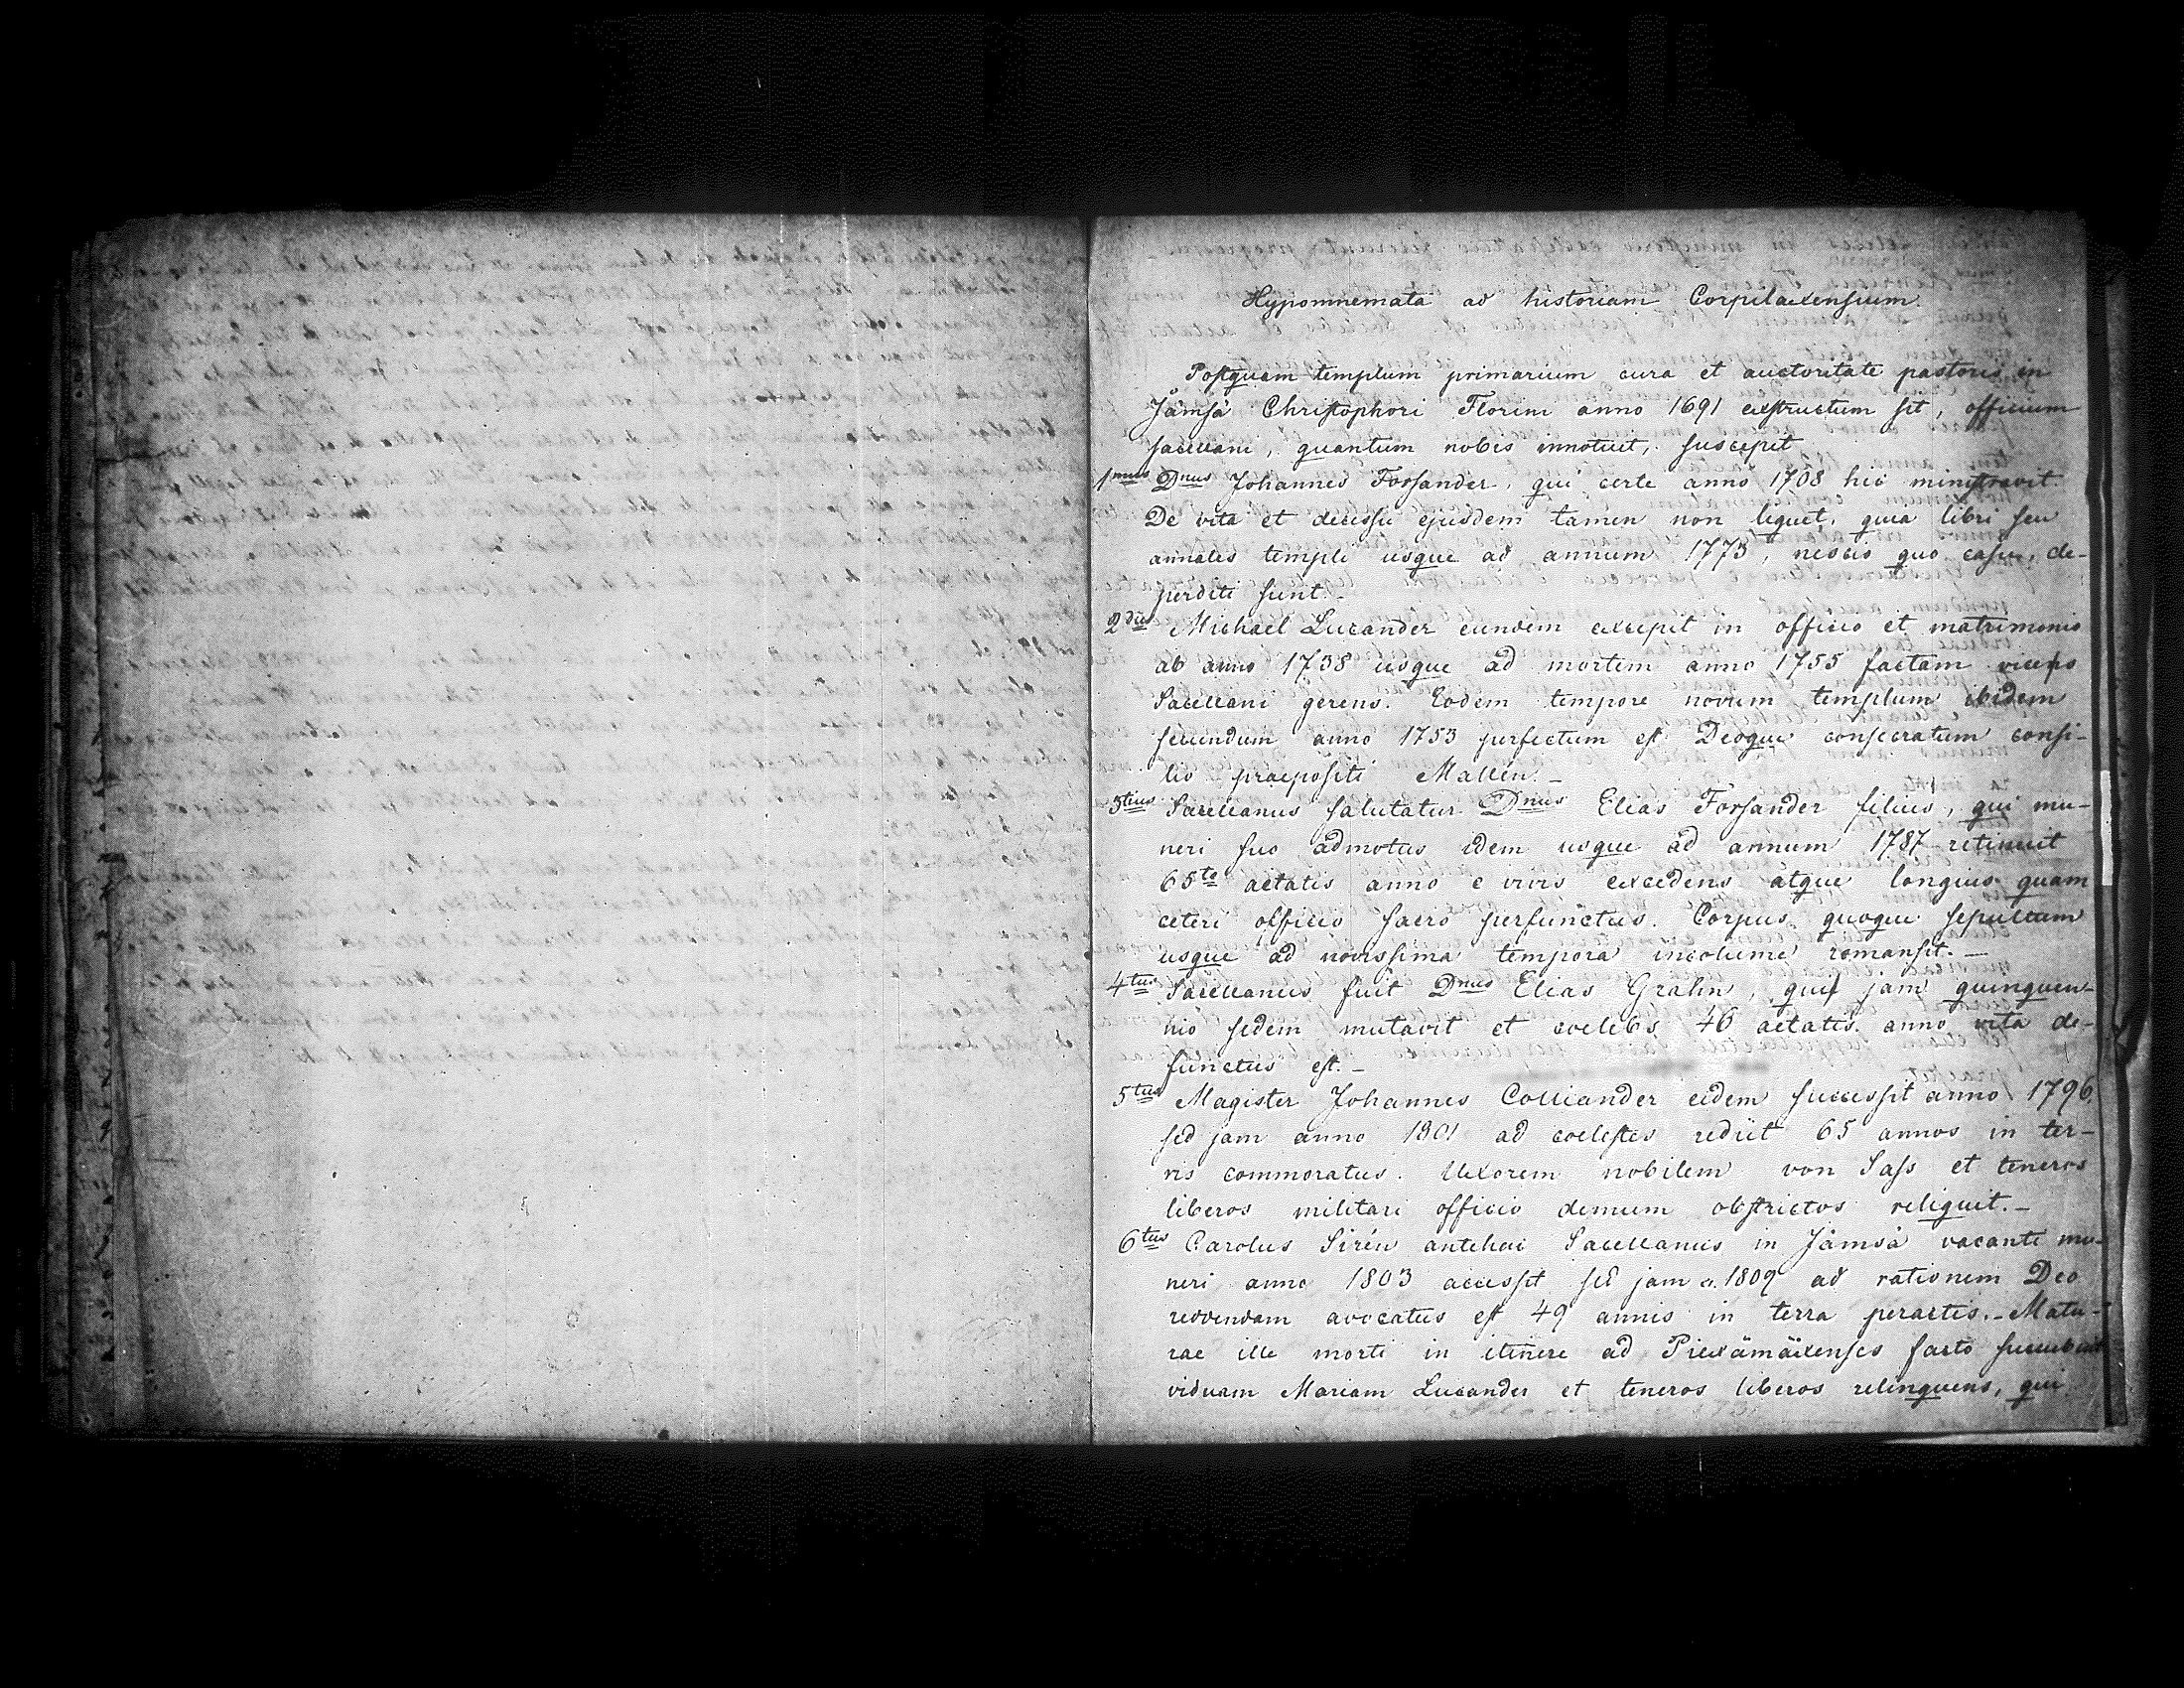 Hypomnemata ad historiam Corpilaxensium.
Postquam templum primarium cura et auctoritate pastoris in
Jämsä Christophori Florini anno 1691 exstructum sit, officium
sacellani, quantum nobis innotuit, suscepit
1mus Dnus Johannes Forsander, qui certe anno 1708 hic ministravit.
De vita et decessu ejusdem tamen non liquet, quia libri seu
annales templi usque ad annum 1773, nescio quo casu, de-
perditi sunt.-
2dus Michael Lucander eundem excepit in officio et matrimonio
ab anno 1738 usque ad mortem anno 1755 factam vices
Sacellani gerens. Eodem tempore novum templum ibidem
secundum anno 1753 perfectum est Deoque consecratum consi-
lio praepositi Mallén.-
3tius Sacellanus salutatur Dnus Elias Forsander filius, qui mu-
neri suo admotus idem usque ad annum 1787 retinuit
65to aetatis anno e vivis excedens atque longius quam
ceteri officio sacro perfunctus. Corpus quoque sepultum
usque ad novissima tempora incolume remansit.-
4tus Sacellanus fuit Dnus Elias Grahn, qui jam quinquen-
nio sedem mutavit et coelebs 46 aetatis anno vita de-
functus est.-
5tus Magister Johannes Colliander eidem successit anno 1796,
sed jam anno 1801 ad coelestes rediit 65 annos in ter-
ris commoratus. Uxorem nobilem von Sass et teneros
liberos militari officio demum obstrictos reliquit.-
6tus Carolus Sirén antehac Sacellanus in Jämsä vacanti mu-
neri anno 1803 accessit sed jam a. 1809 ad rationem Deo
reddendam avocatus est 49 annis in terra peractis.- Matu-
rae ille morti in itinere ad Piexämäxenses facto succubuit
viduam Mariam Lucander et teneros liberos relinquens, qui